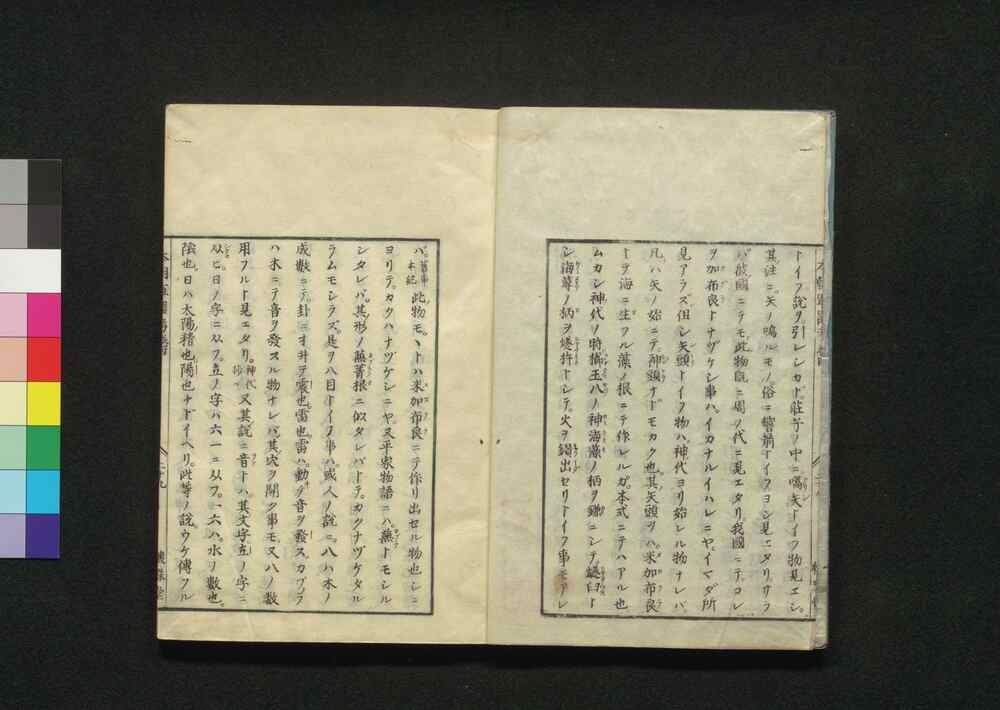 トイフ説ヲ引レシカド。莊子ノ中ニ嚆矢トイフ物見エシ。
其注ニ。矢ノ鳴ルモノ俗ニ響箭トイフヨシ見エタリサラ
バ彼國ニテモ此物既ニ周ノ代ニ見エタリ。我國ニテコレ
ヲ加布良トナヅケシ事ハ。イカナルイハレニヤ。イマダ所
見アラズ。但シ矢頭トイフ物ハ神代ヨリ始レル物ナレバ。
凡ハ矢ノ始ニテ神頭ナドモカク也。其矢頭ヲハ。米加布良
トテ海ニ注フル藻ノ根ニテ作レルガ。本式ニテハアル也
ムカシ神代ノ時櫛玉八ノ神海藻ノ柄ヲ鎌ニシテ燧臼ト
シ海蓴ノ柄ヲ燧杵トシテ。火ヲ鑽出セリトイフ事モアレ
バ。舊事本紀此物モ。モトハ米加布良ニテ作リ出セル物也シニ
ヨリテ。カクハナヅケシニヤ。又平家物語ニハ。蕪トモシル
シタレバ。其形ノ蕪菁根ニ似タレバトテ。カクナヅケタル
ラムモシラズ。是ヲ八目トイフ事ハ。或人ノ説ニ。八ハ木ノ
成數ニテ。卦ニオヰテ震也雷也雷ハ動テ音ヲ發ス。カブラ
ハ木ニテ音ヲ發スル物ナレバ其穴ヲ開ク事モ又八ノ數
用フルト見エタリ。神代抄又其説ニ音トハ其文字立ノ字ニ
从ヒ日ノ字ニ从フ。立ノ字ハ六一ニ从フ。一六ハ。水ノ數也。
陰也。日ハ太陽精也陽也ナドイヘリ。此等ノ説ウケ傳フル